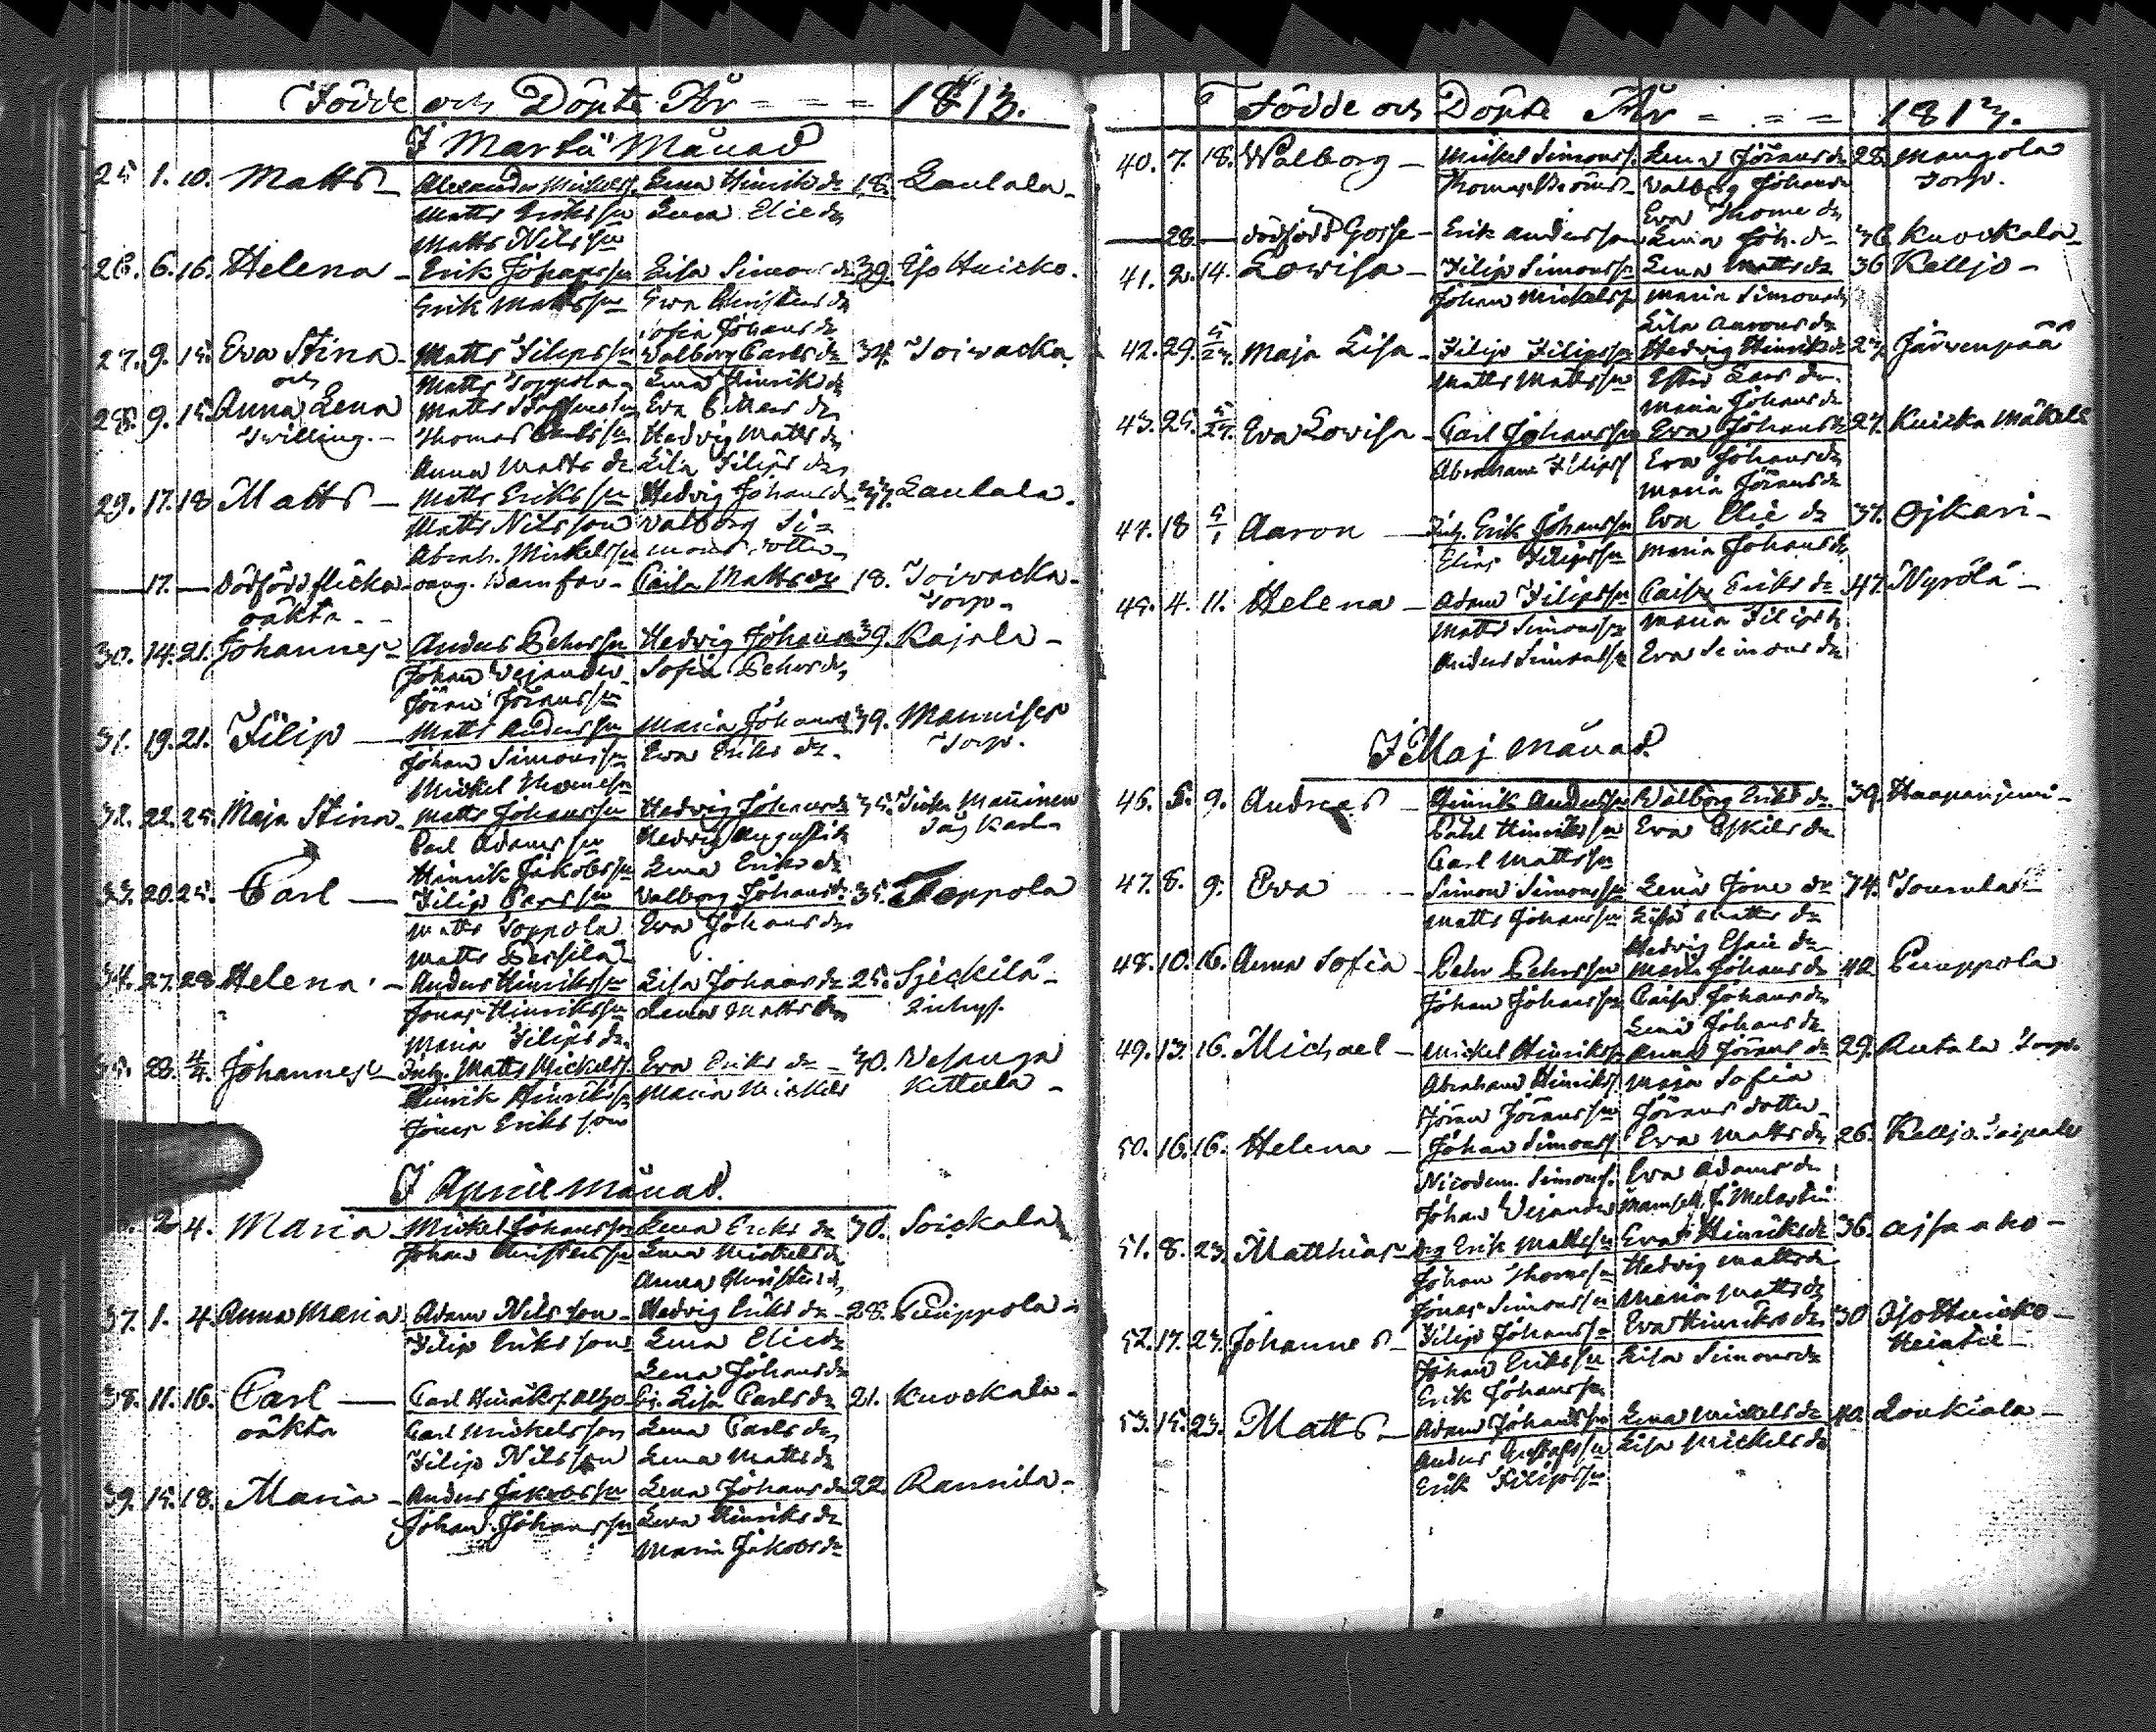 Födde och Döpte År - - - 1813.
I Martii Månad
25 1. 10. Matts - Alexander Mickels. Lena Hinriks dr 18. Laulala -
Matts Eriksson Lena Elie dr
Matts Nilsson
26. 6. 16. Helena - Erik Johansson Lisa Simons dr 39.
Erik Mattsson Eva Christers dr
Sofia Johans dr
27. 9. 15. Eva Stina - Matts Filipsson Walborg Carls dr 34. Toiwacka
och Matts Toppola - Lena Hinriks dr
28. 9. 15. Anna Lena Matts Eva
Twilling. - Thomas Hedvig Matts dr
Anna Matts dr Lisa Filips dr
29. 17. 18 Matts - Matts Eriksson Hedvig Johans dr Laulala.
Matts Nilsson Walborg Si=
Abrah. Mickelsson mons dotter
— 17. — Dödfödd flicka - Caisa Matts dr 18. Toiwacka -
oäkta - - Torp -
30. 14. 21. Johannes - Anders Pehrsson Hedvig Johans 39. Kajala -
Johan Wejander - Sofia Pehrs dr
Jöran Jöransson
31. 19. 21. Filip — Matts Andersson Maria Johans 39. Mannisen
Johan Simonsson Eva Eriks dr. Torp.
Mickel Thomesson
32. 22. 25. Maja Stina - Matts Johansson Hedvig Johans dr 35.
Carl Adamsson Hedvig
Hinrik Jakobsson Lena Eriks dr
33. 20. 25. Carl — Filip Carsson Walborg Johans dr. 35. Toppola
Matts Toppola Eva Johans dr
Matts
34. 27. 28 Helena - Anders Hinriksson Lisa Johans dr 25.
Jonas Hinriksson Lena Matts dr
Maria Filips dr
35. 28. 4/4. Johannes - Inh. Matts Mickels. Eva Eriks dr - 30. Wesanga
Hinrik Hinriksson Maria Mickels Kettula -
Jöns Eriksson
I Aprill månad.
2 4. Maria - Mickel Johansson Lena Eriks dr 30. Soickala
Johan Christersson Lena Mickels dr
Anna Christers dr
37. 1. 4. Anna Maria Adam Nilsson - Hedvig Eriks dr - 28. Puuppola -
Filip Eriksson Lena Elie dr
Lena Johans dr
38. 11. 16. Carl — Carl Lisa Carls dr 21. Kuockala -
oäkta Carl Mickelsson Lena Carls dr
Filip Nilsson Lena Matts dr
39. 15. 18. Maria - Anders Jakobsson Lena Johans dr 22. Rannila -
Johan Johansson Lena Hinriks dr
Maria Jakobs dr
Födde och Döpte År - - - 1813.
40. 7. 18. Walborg - Mickel Simons. Lena Jörans dr 28. Mangola
Thomas Walborg Johans dr Torp.
Eva Thome dr
— 28. — dödfödd Gosse - Erik Andersson Lena Joh. dr 36 Kuockala -
41. 2. 14. Lowisa - Filip Simonsson Lena Matts dr 36 Kelljo -
Johan Mickelsson Maria Simons dr
Lisa Aarons dr
42. 29. 5/23. Maja Lisa - Filip Filipsson Hedvig Hinriks dr Järvenpää
Matts Mattsson Ester Lars dr.
Maria Johans dr
43. 25. Eva Lowisa - Carl Johansson Eva Johans dr 27.
Abraham Filips. Eva Johans dr
Maria Jörans dr
44. 18 5/1 Aaron — Inh. Erik Johansson Eva Elie dr 37. Ojkari -
Elias Filipsson Maria Johans dr
45. 4. 11. Helena - Adam Filipsson Caisa Eriks dr 47. Nyrölä -
Matts Simonsson Maria Filips dr
Anders Simonsson Eva Simons dr
I Maj månad.
46. 5. 9. Andreas - Hinrik Andersson Walborg Eriks dr 39. Haapaniemi -
Pähl Hinriksson Eva Eskils dr
Carl Mattsson
47. 8. 9. Eva - - - Simon Simonsson Lena Jöns dr 34. Tourula -
Matts Johansson Lisa Matts dr
Hedvig Esaie dr
48. 10. 16. Anna Sofia - Pehr Pehrsson Maria Johans dr 42 Puuppola
Johan Johansson Caisa Johans dr
Lena Johans dr
49. 13. 16. Michael - Mickel Hinriksson Anna Jörans dr 29. Rutala Torp.
Abraham Hinriks. Maja Sofia
Jöran Jöransson Jörans dotter -
50. 16. 16. Helena - Johan Simons. Eva Matts dr 26. Kelljo
Nicodem. Simons. Eva Adams dr
Johan Wejander Mamsell
51. 8. 23. Matthias - Erik Mattsson Eva Hinriks dr 36.
Johan Thomesson Hedvig Matts dr
Jonas Simonsson Maria Matts dr
52. 17. 23. Johannes - Filip Johansson Eva Hinriks dr 30
Johan Eriksson Lisa Simons dr
Erik Johansson
53. 15. 23. Matts - Adam Johansson Lena Mickels dr 40. Loukiala -
Anders Gustafsson Lisa Mickels dr
Erik Filipsson